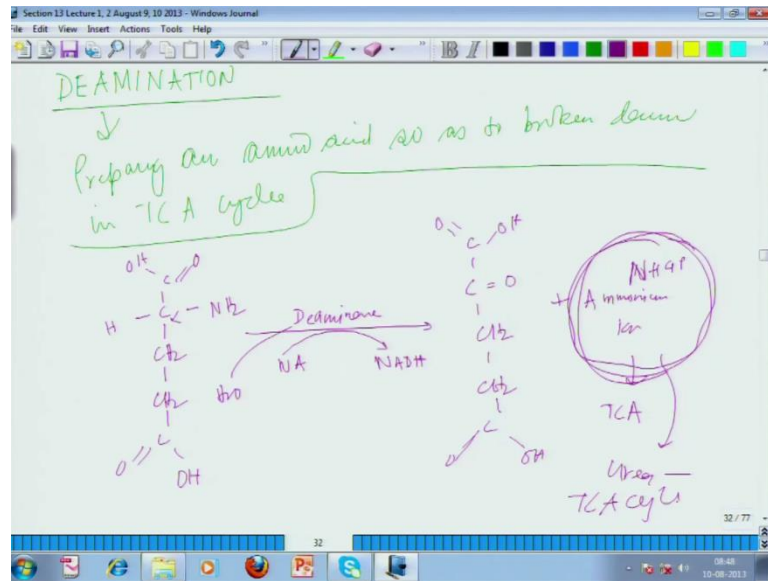 Section 13 Lecture 1, 2 August 9, 10 2013 - Windows Journal
File Edit View Insert Actions Tools Help
B I
DEAMINATION
Preparing an amino acid so as to broken down
in TCA cycle
OH O
C
H - C - NH2
CH2
CH2
C
O OH
Deaminase
H2O NA NADH
O OH
C
C = O
CH2
CH2
C
O OH
+
NH4+
Ammonium
ion
TCA
Urea
TCA cycle
32 / 77
32
08:48
10-08-2013